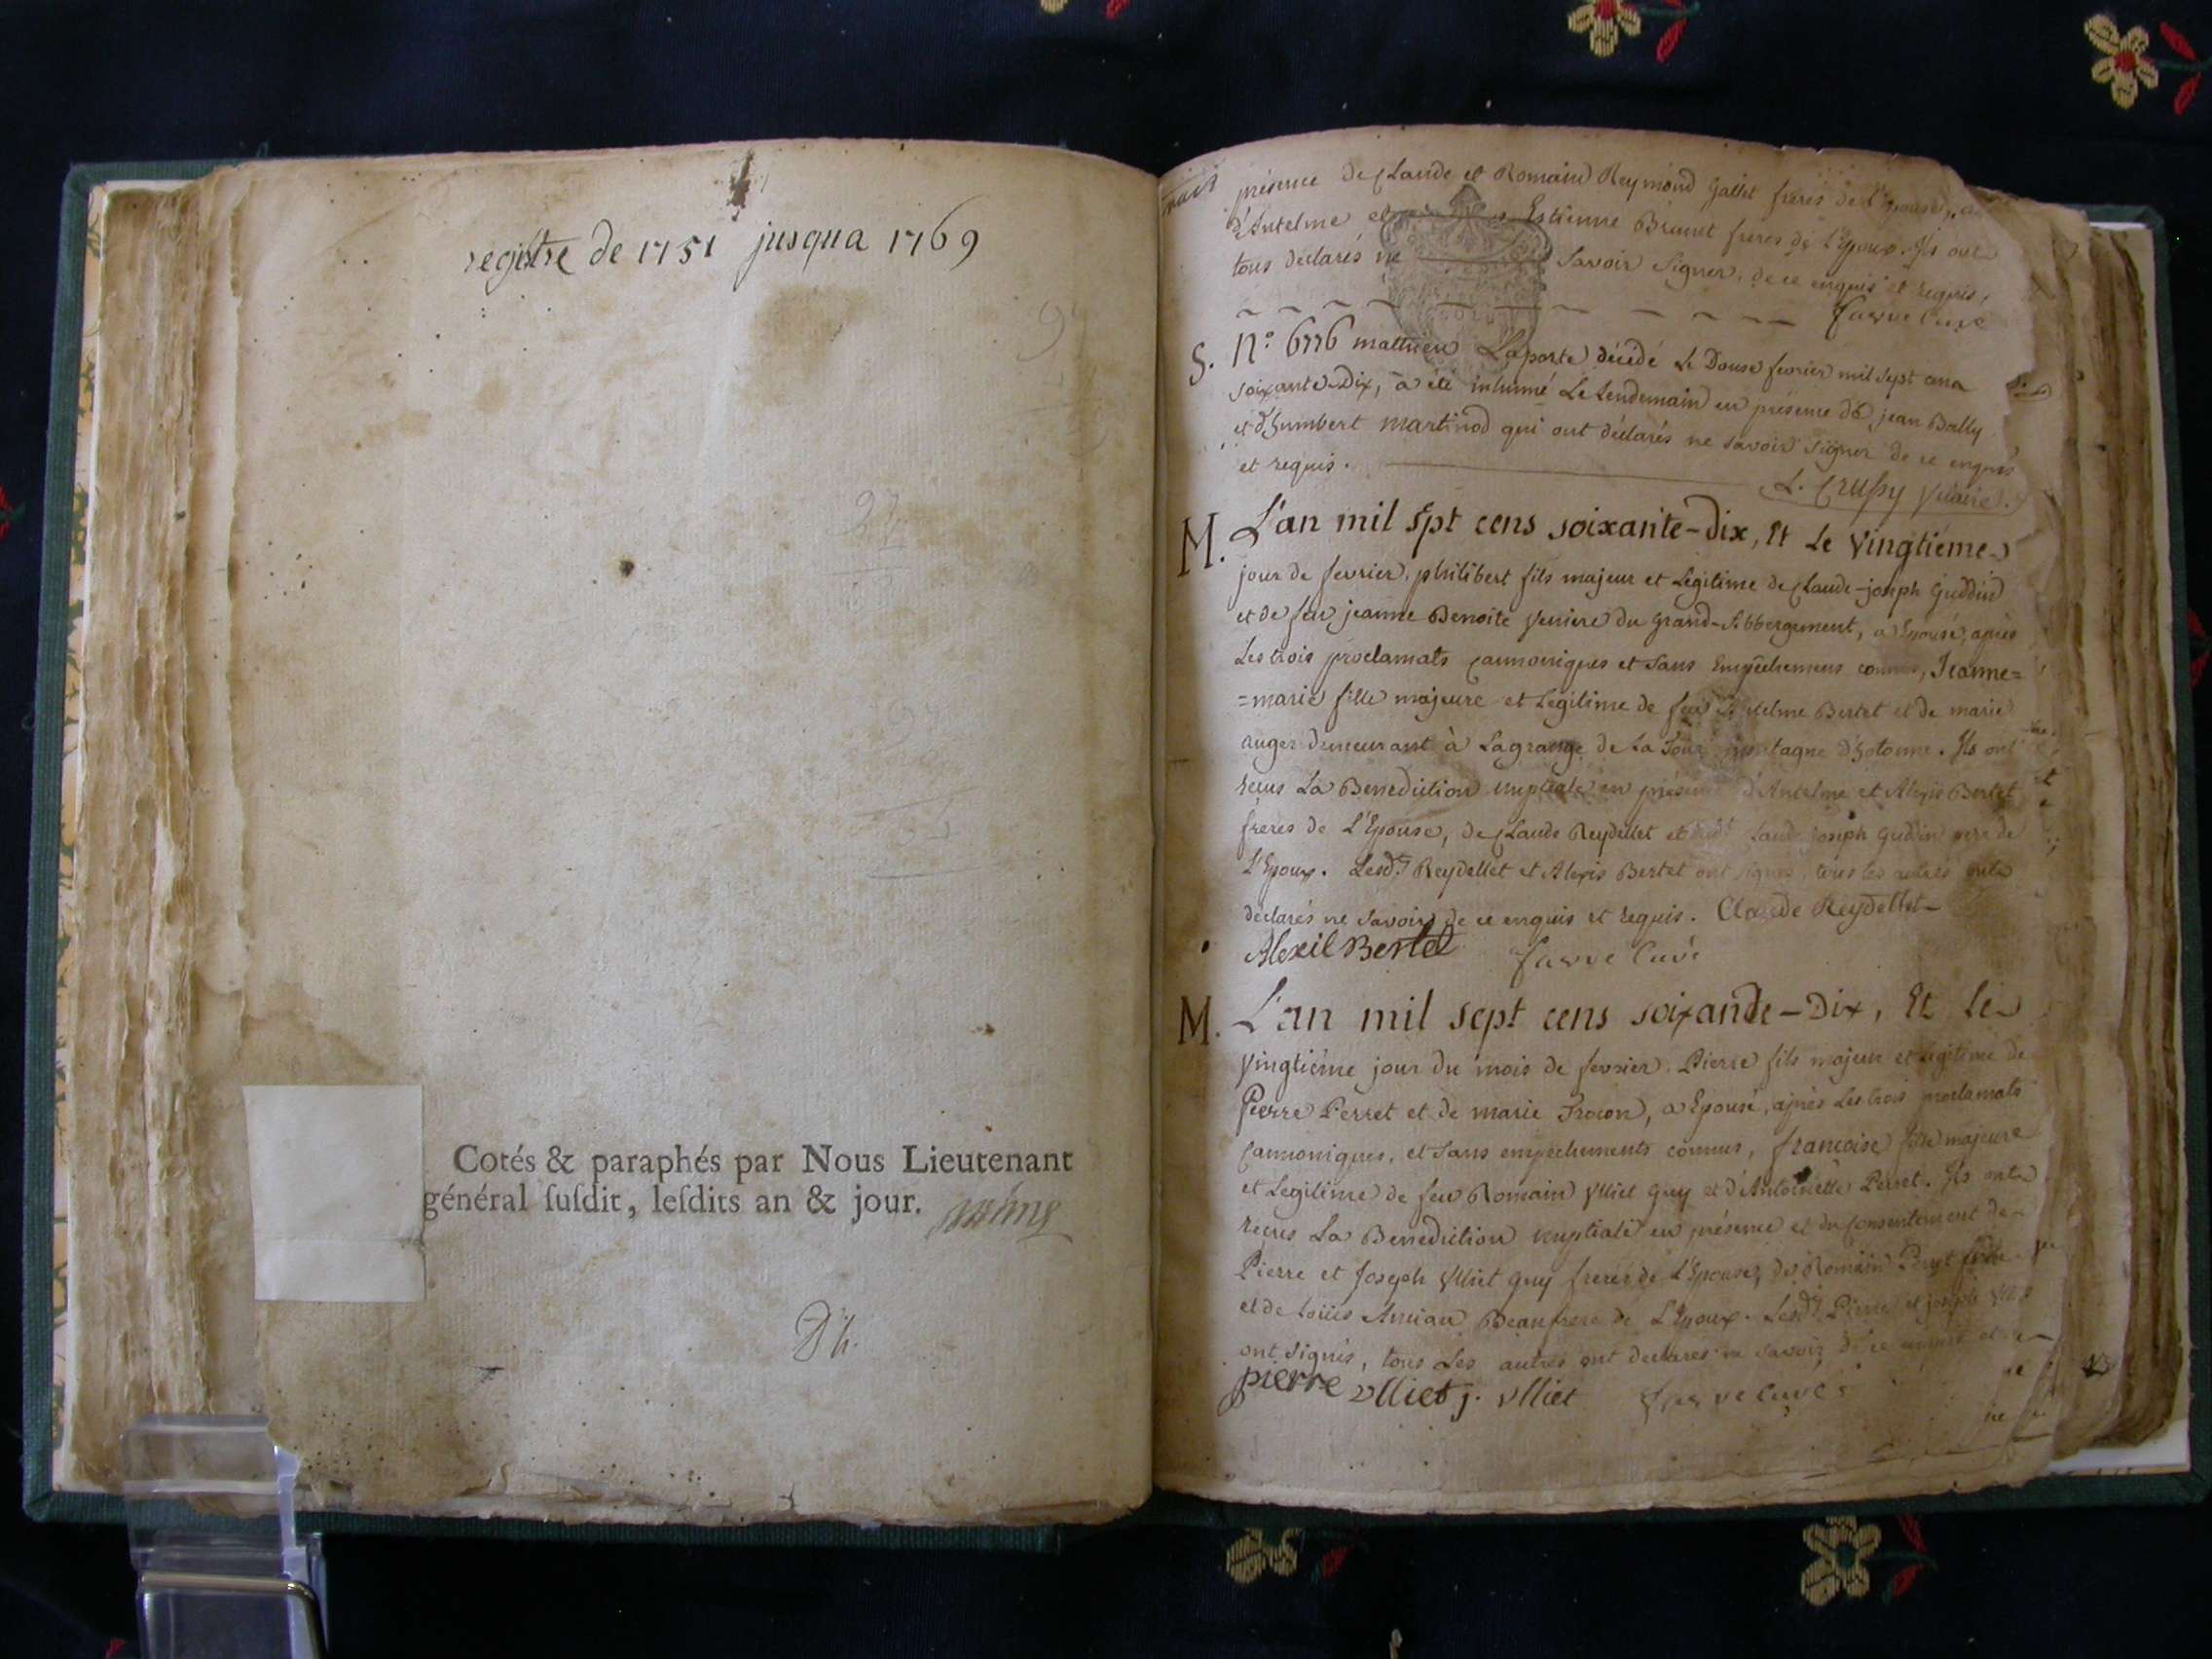 registre de 1751 jusqua 1769
Cotés & paraphés par Nous Lieutenant
général suſdit, leſdits an & jour.
présence de Claude et Romain Reymond Gallet freres de L'Epouse,
d'Antelme et Estienne Brunet freres de L'Epoux. Ils ont
tous déclarés ne savoir signer, de ce enquis et requis,
favre Curé
S. N.° 6 mathieu Laporte décédé Le Douse fevrier mil sept cens
soixante-Dix, a été inhumé Le Lendemain en présence de jean Bally
et d'humbert martinod qui ont déclarés ne savoir signer de ce enquis
et requis.
M. L'an mil sept cens soixante-dix, Et Le vingtiéme
jour de fevrier, philibert fils majeur et Légitime de Claude-joseph Guddin
et de feu jeanne Benoite du grand-Abbergement, a Epousé, après
Les trois proclamats cannoniques et sans Empêchemens connus, Jeanne=
=marie fille majeure et Légitime de feu Antelme Bertet et de marie
auger demeurant à Lagrange de La Tour montagne d'hotonne. Ils ont
reçus La Benediction nuptiale en présence d'Antelme et Alexis Bertet
freres de L'Epouse, de Claude Reydellet et Claude joseph Guddin pere de
L'Epoux. Lesd.ts Reydellet et Alexis Bertet ont signés, tous les autres ont
déclarés ne savoir de ce enquis et requis. Claude Reydellet
Alexil Bertel favre Curé
M. L'an mil sept cens soixante-Dix, Et Le
vingtiéme jour du mois de fevrier. Pierre fils majeur et Légitime de
Pierre Perret et de marie, a Epousé, après Les trois proclamats
cannoniques, et sans empêchements connus, françoise fille majeure
et Légitime de feu Romain Ulliet Guy et d'Antoinette Perret. Ils ont
reçus La Benediction nuptiale en présence et du consentement de
Pierre et Joseph Ulliet Guy freres de L'Epouse, de Romain
et de Loüis Beaufrere de L'Epoux. Lesd.ts Pierre et joseph
ont signés, tous Les autres ont déclarés ne savoir de ce enquis et
pierre Ulliet j. Ulliet favre Curé